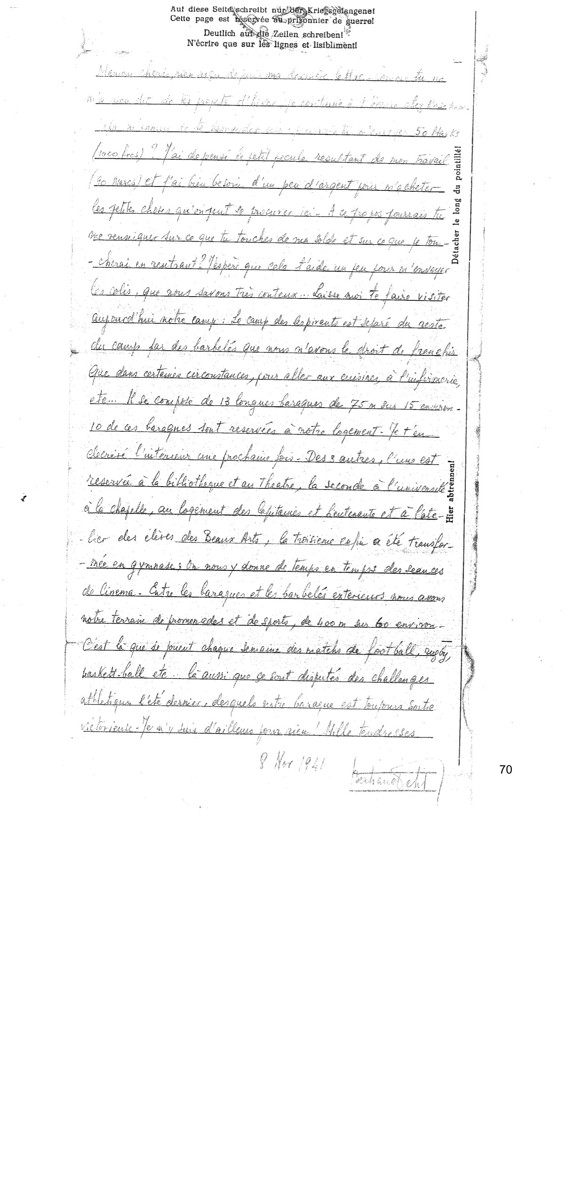 Auf diese Seite schreibt nur der Kriegsgefangene!
Cette page est réservée au prisonnier de guerre!
Deutlich auf die Zeilen schreiben!
N'écrire que sur les lignes et lisiblement!
Maman chérie, rien reçu depuis ma dernière lettre. Comme tu ne
m'as rien dit de tes projets d'hiver, je continue à t'écrire chez
50 Marks
(1000 frcs) ? J'ai dépensé le petit pécule résultant de mon travail
(90 marcs) et j'ai bien besoin d'un peu d'argent pour m'acheter
les petites choses qu'on peut se procurer ici. A ce propos pourrais tu
me renseigner sur ce que tu touches de ma solde et sur ce que je tou-
-cherai en rentrant ? J'espère que cela t'aide un peu pour m'envoyer
les colis, que nous savons très coûteux... Laisse moi te faire visiter
aujourd'hui notre camp : Le camp des Aspirants est séparé du reste
du camp par des barbelés que nous n'avons le droit de franchir
que dans certaines circonstances, pour aller aux cuisines, à l'infirmerie,
etc... Il se compose de 13 longues baraques de 75 m sur 15 environ.
10 de ces baraques sont réservées à notre logement. Je t'en
décrirai l'intérieur une prochaine fois. Des 3 autres, l'une est
réservée à la bibliothèque et au Théâtre, la seconde à l'université
à la chapelle, au logement des Capitaines et lieutenants et à l'ate-
-lier des élèves des Beaux Arts, la troisième enfin a été transfor-
-mée en gymnase; On nous y donne de temps en temps des séances
de Cinéma. Entre les baraques et les barbelés extérieurs nous avons
notre terrain de promenades et de sports, de 400 m sur 60 environ.
C'est là que se jouent chaque semaine des matchs de football, rugby,
basket-ball etc là aussi que se sont disputés des challenges
athlétiques l'été dernier, desquels notre baraque est toujours sortie
victorieuse. Je n'y suis d'ailleurs pour rien! Mille tendresses
8 Nov 1941
Détacher le long du pointillé!
Hier abtrennen!
70